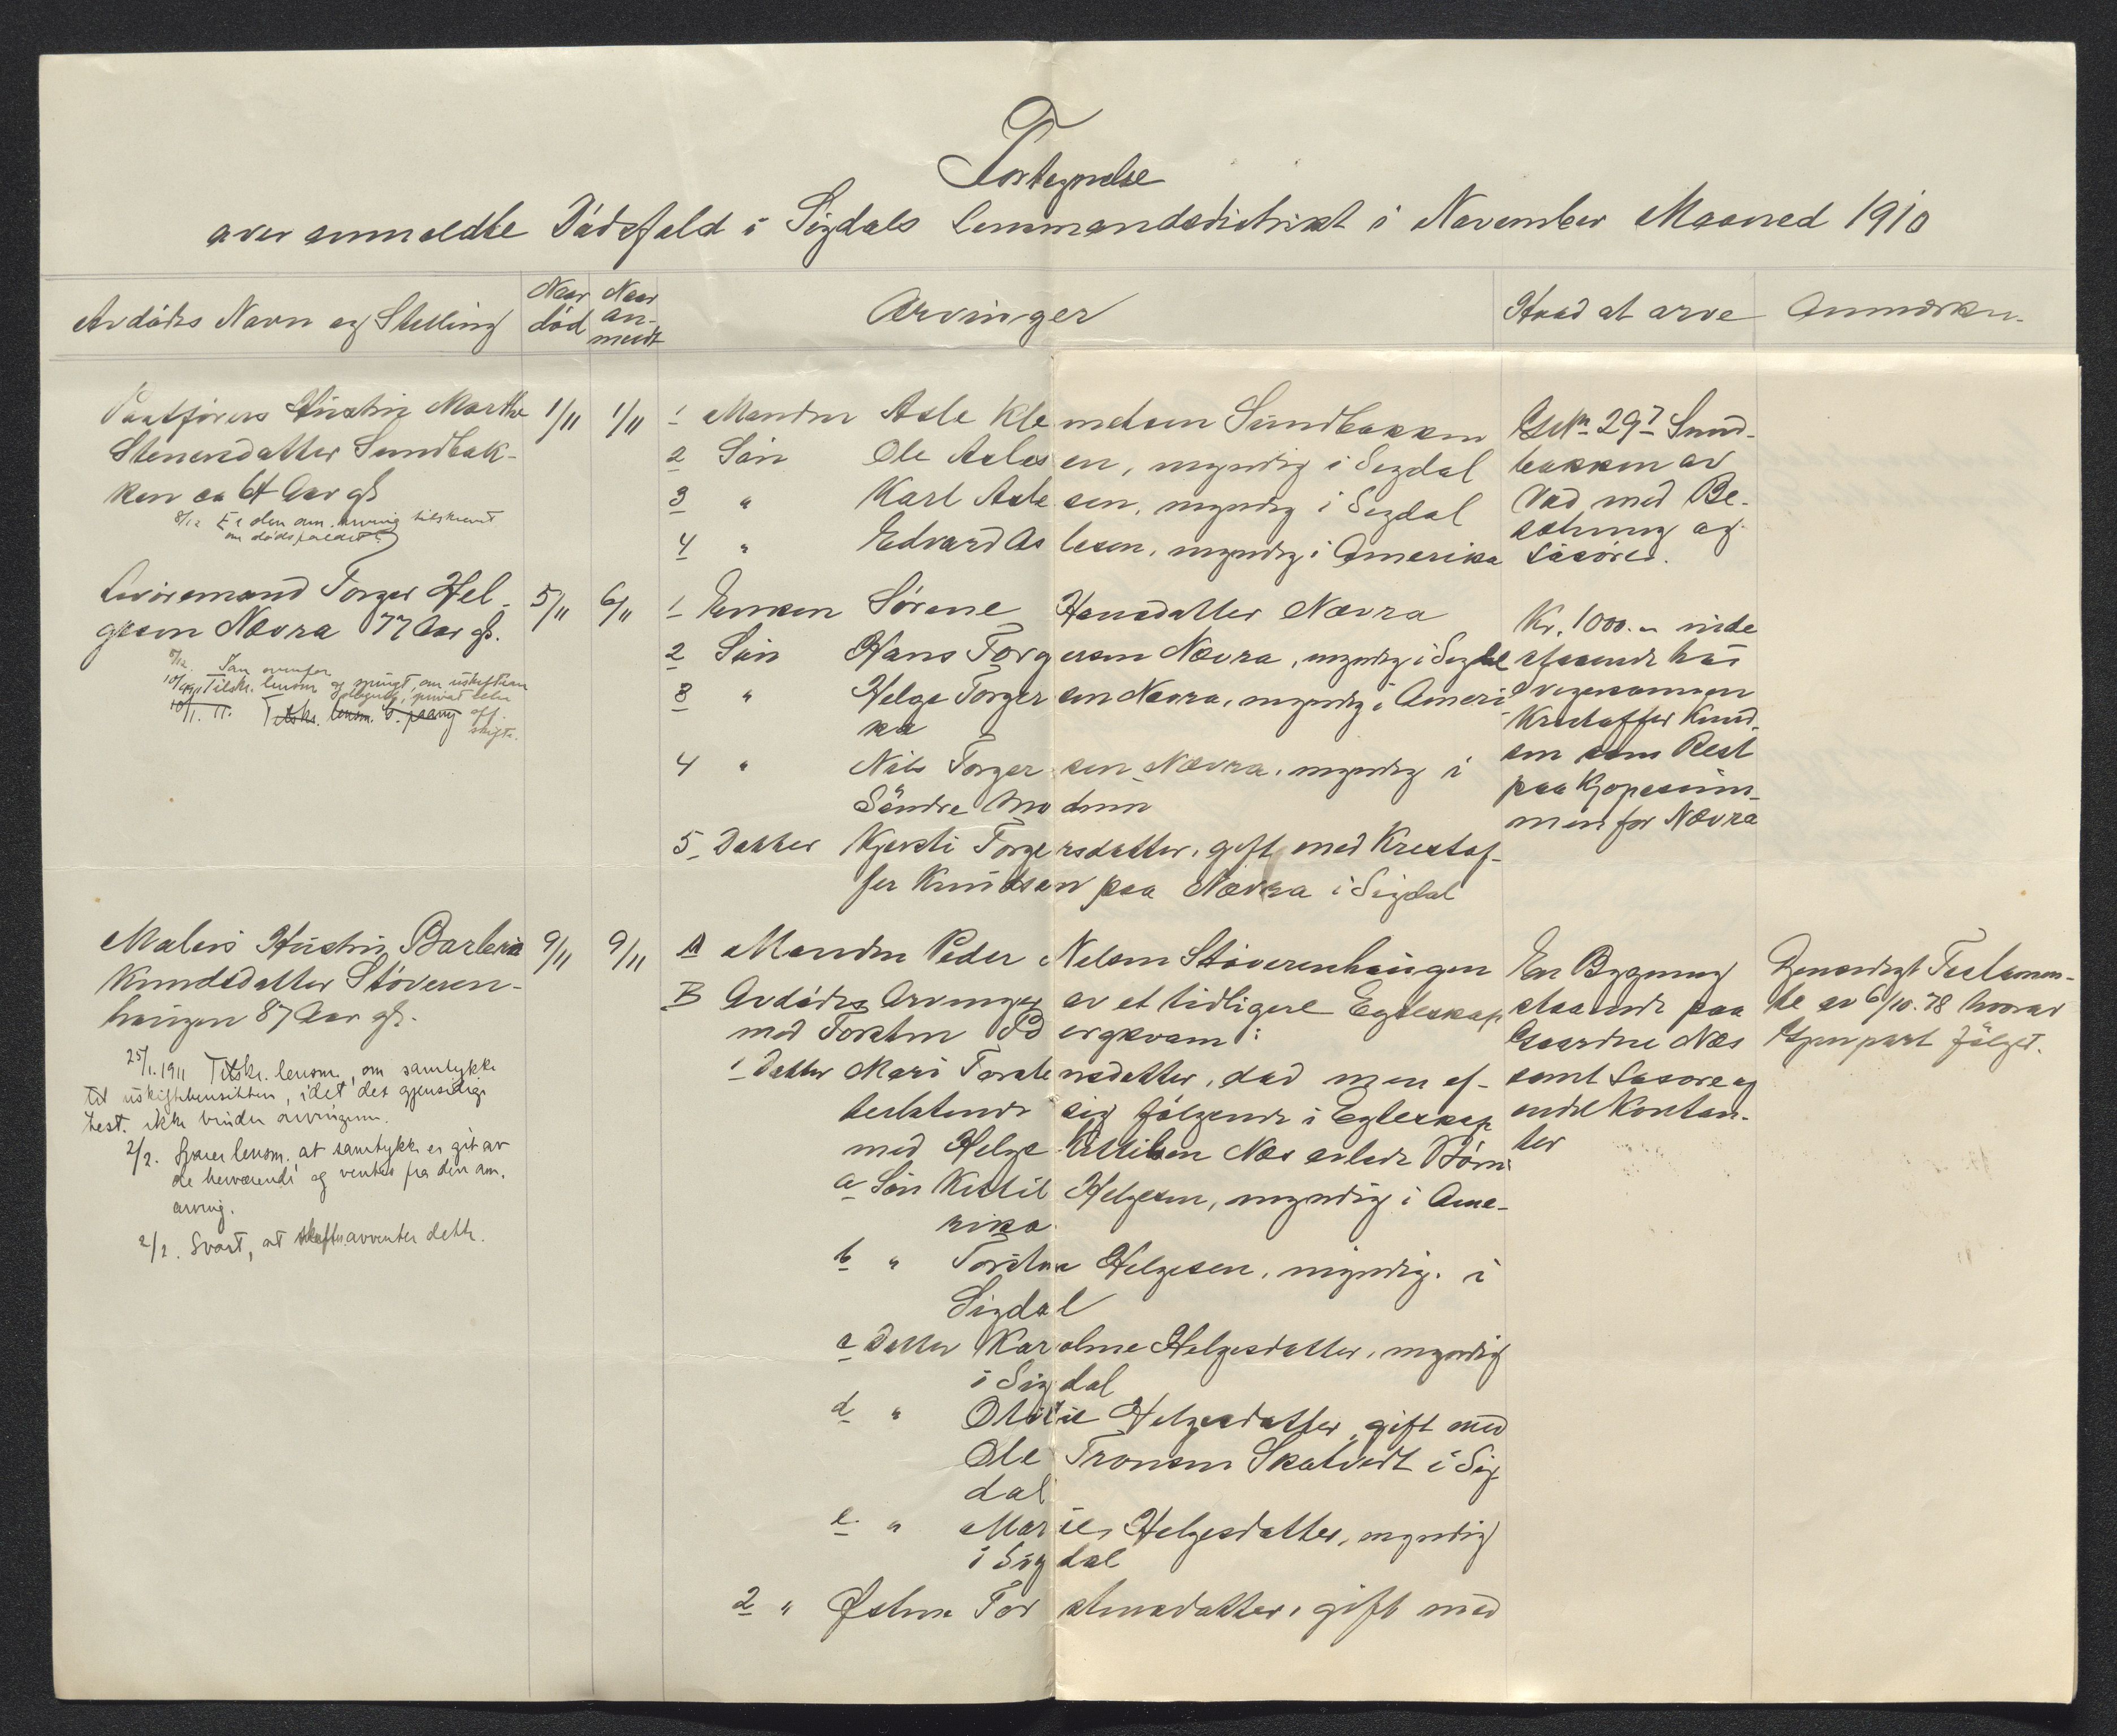 Fortegnelse
over anmeldte Dødsfald i Sigdals Lensmandsdistrikt i November Maaned 1910
Avdødes Navn og Stilling
Naar død
Naar an-
meldt
Arvinger
Hvad at arve
Anmerkn.
Hustru Marthe
Stenersdatter Sundbak-
ken ca 64 Aar gl.
8/12 Er den am. arving tilskrevet
om dødsfaldet?
1/11
1/11
1 Manden Asle Klemetsen Sundbakken
2 Søn Ole Aslesen, myndig i Sigdal
3 " Karl Aslesen, myndig i Sigdal
4 " Edvard Aslesen, myndig i Amerika
Gbr No 29/7 Sund-
bakken av
med Be-
sætning og
Løsøre.
Torger Hel-
gesen Nævra 77 Aar gl.
8/12.
Tilskr. lensm. og spurgt, om uskiftet
privat eller
off.
skifte.
10/1. 11. Tilskr. lensm.
5/11
6/11
1 Enken Sørene Hansdatter Nævra
2 Søn Hans Torgersen Nævra, myndig i Sigdal
3 " Helge Torgersen Nævra, myndig i Ameri-
ka
4 " Nils Torgersen Nævra, myndig i
Søndre Modum
5 Datter Kjersti Torgersdatter, gift med Kristof-
fer Knudsen paa Nævra i Sigdal
Kr. 1000.- inde
staaende hos
Svigersønnen
Kristoffer Knud-
sen som Rest
paa Kjøpesum-
men for Nævra
Malers Hustru Barbera
Knudsdatter Støveren-
haugen 87 Aar gl.
25/1. 1911 Tilskr. lensm. om samtykke
til uskiftebevilling, idet det gjensidige
test. ikke binder arvingene.
2/2. Svarer lensm. at samtykke er git av
de herværende og ventes fra den am.
arving.
2/2. Svart, at skiftet avventer dette.
9/11
9/11
A Manden Peder Nelsen Støverenhaugen
B Avdødes Arvinger av et tidligere Egteskap
med Torsten Bergkvam:
1 Datter Mari Torstensdatter, død men ef-
terlatende sig følgende i Egteskap
med Helge Kittilsen Næs avlede Børn:
a Søn Kittil Helgesen, myndig i Ame-
rika.
b " Torsten Helgesen, myndig i
Sigdal
c Datter Karoline Helgesdatter, myndig
i Sigdal
d " Otilie Helgesdatter, gift med
Ole Tronsen Skatvedt i Sig-
dal
e. " Marie Helgesdatter, myndig
i Sigdal
2 " Østen Torstensdatter, gift med
En Bygning
staaende paa
Gaarden Næs
samt Løsøre og
endel Kontan-
ter
Gjensidigt Testamen-
te av 6/10. 78 hvorav
Gjenpart følger.